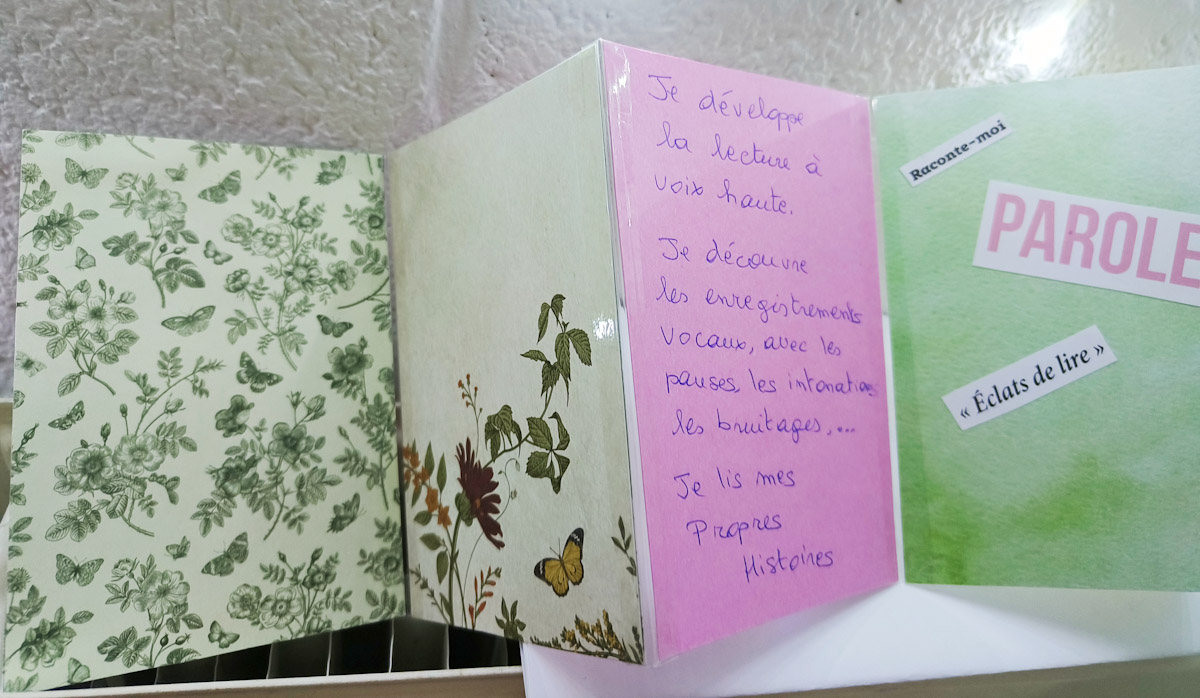 Je développe
la lecture à
voix haute.
Je découvre
les enregistrements
vocaux, avec les
pauses, les intonations
les bruitages,...
Je lis mes
Propres
Histoires
Raconte-moi
PAROLE
« Éclats de lire »